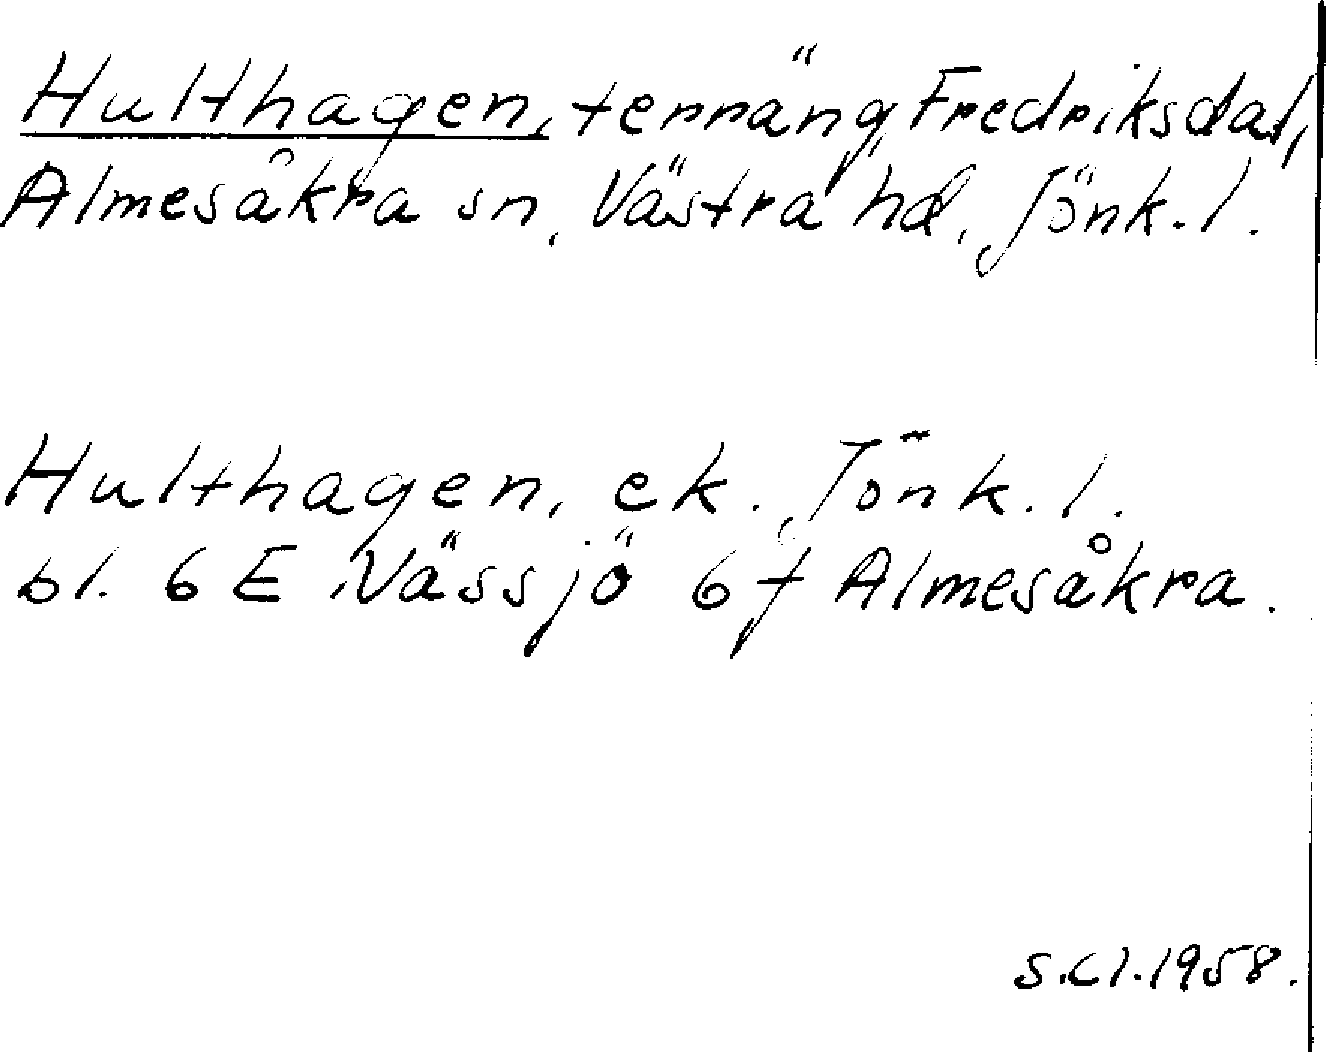 Hulthagen, terräng, Fredriksdal,
Almesåkra sn, Västra hd, Jönk. l.
Hulthagen, ek. Jönk. l.
bl. 6 E Nässjö 6 f Almesåkra.
S.Cl.1958.